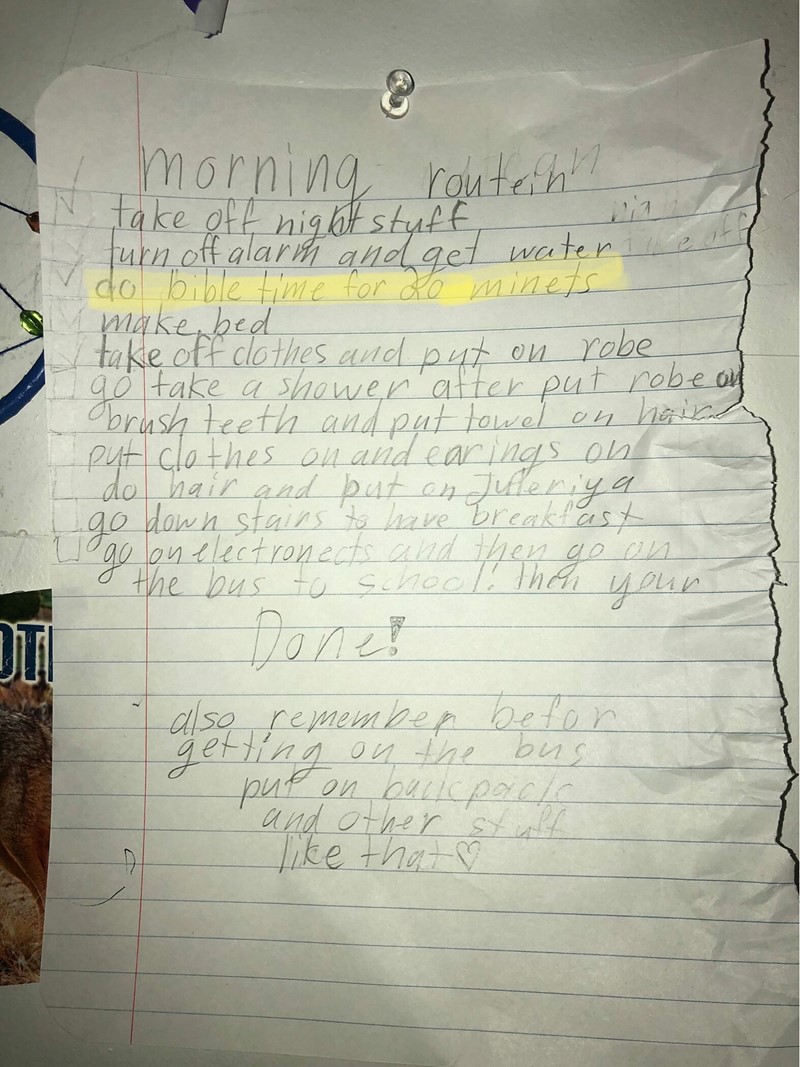 morning routein
take off night stuff
turn off alarm and get water
do bible time for 20 minets
make bed
take off clothes and put on robe
go take a shower after put robe on
brush teeth and put towel on hair
put clothes on and earings on
do hair and put on juleriya
go down stairs to have breakfast
go on electronects and then go on
the bus to school! then your
Done!
also remember befor
getting on the bus
put on backpack
and other stuff
like that♡